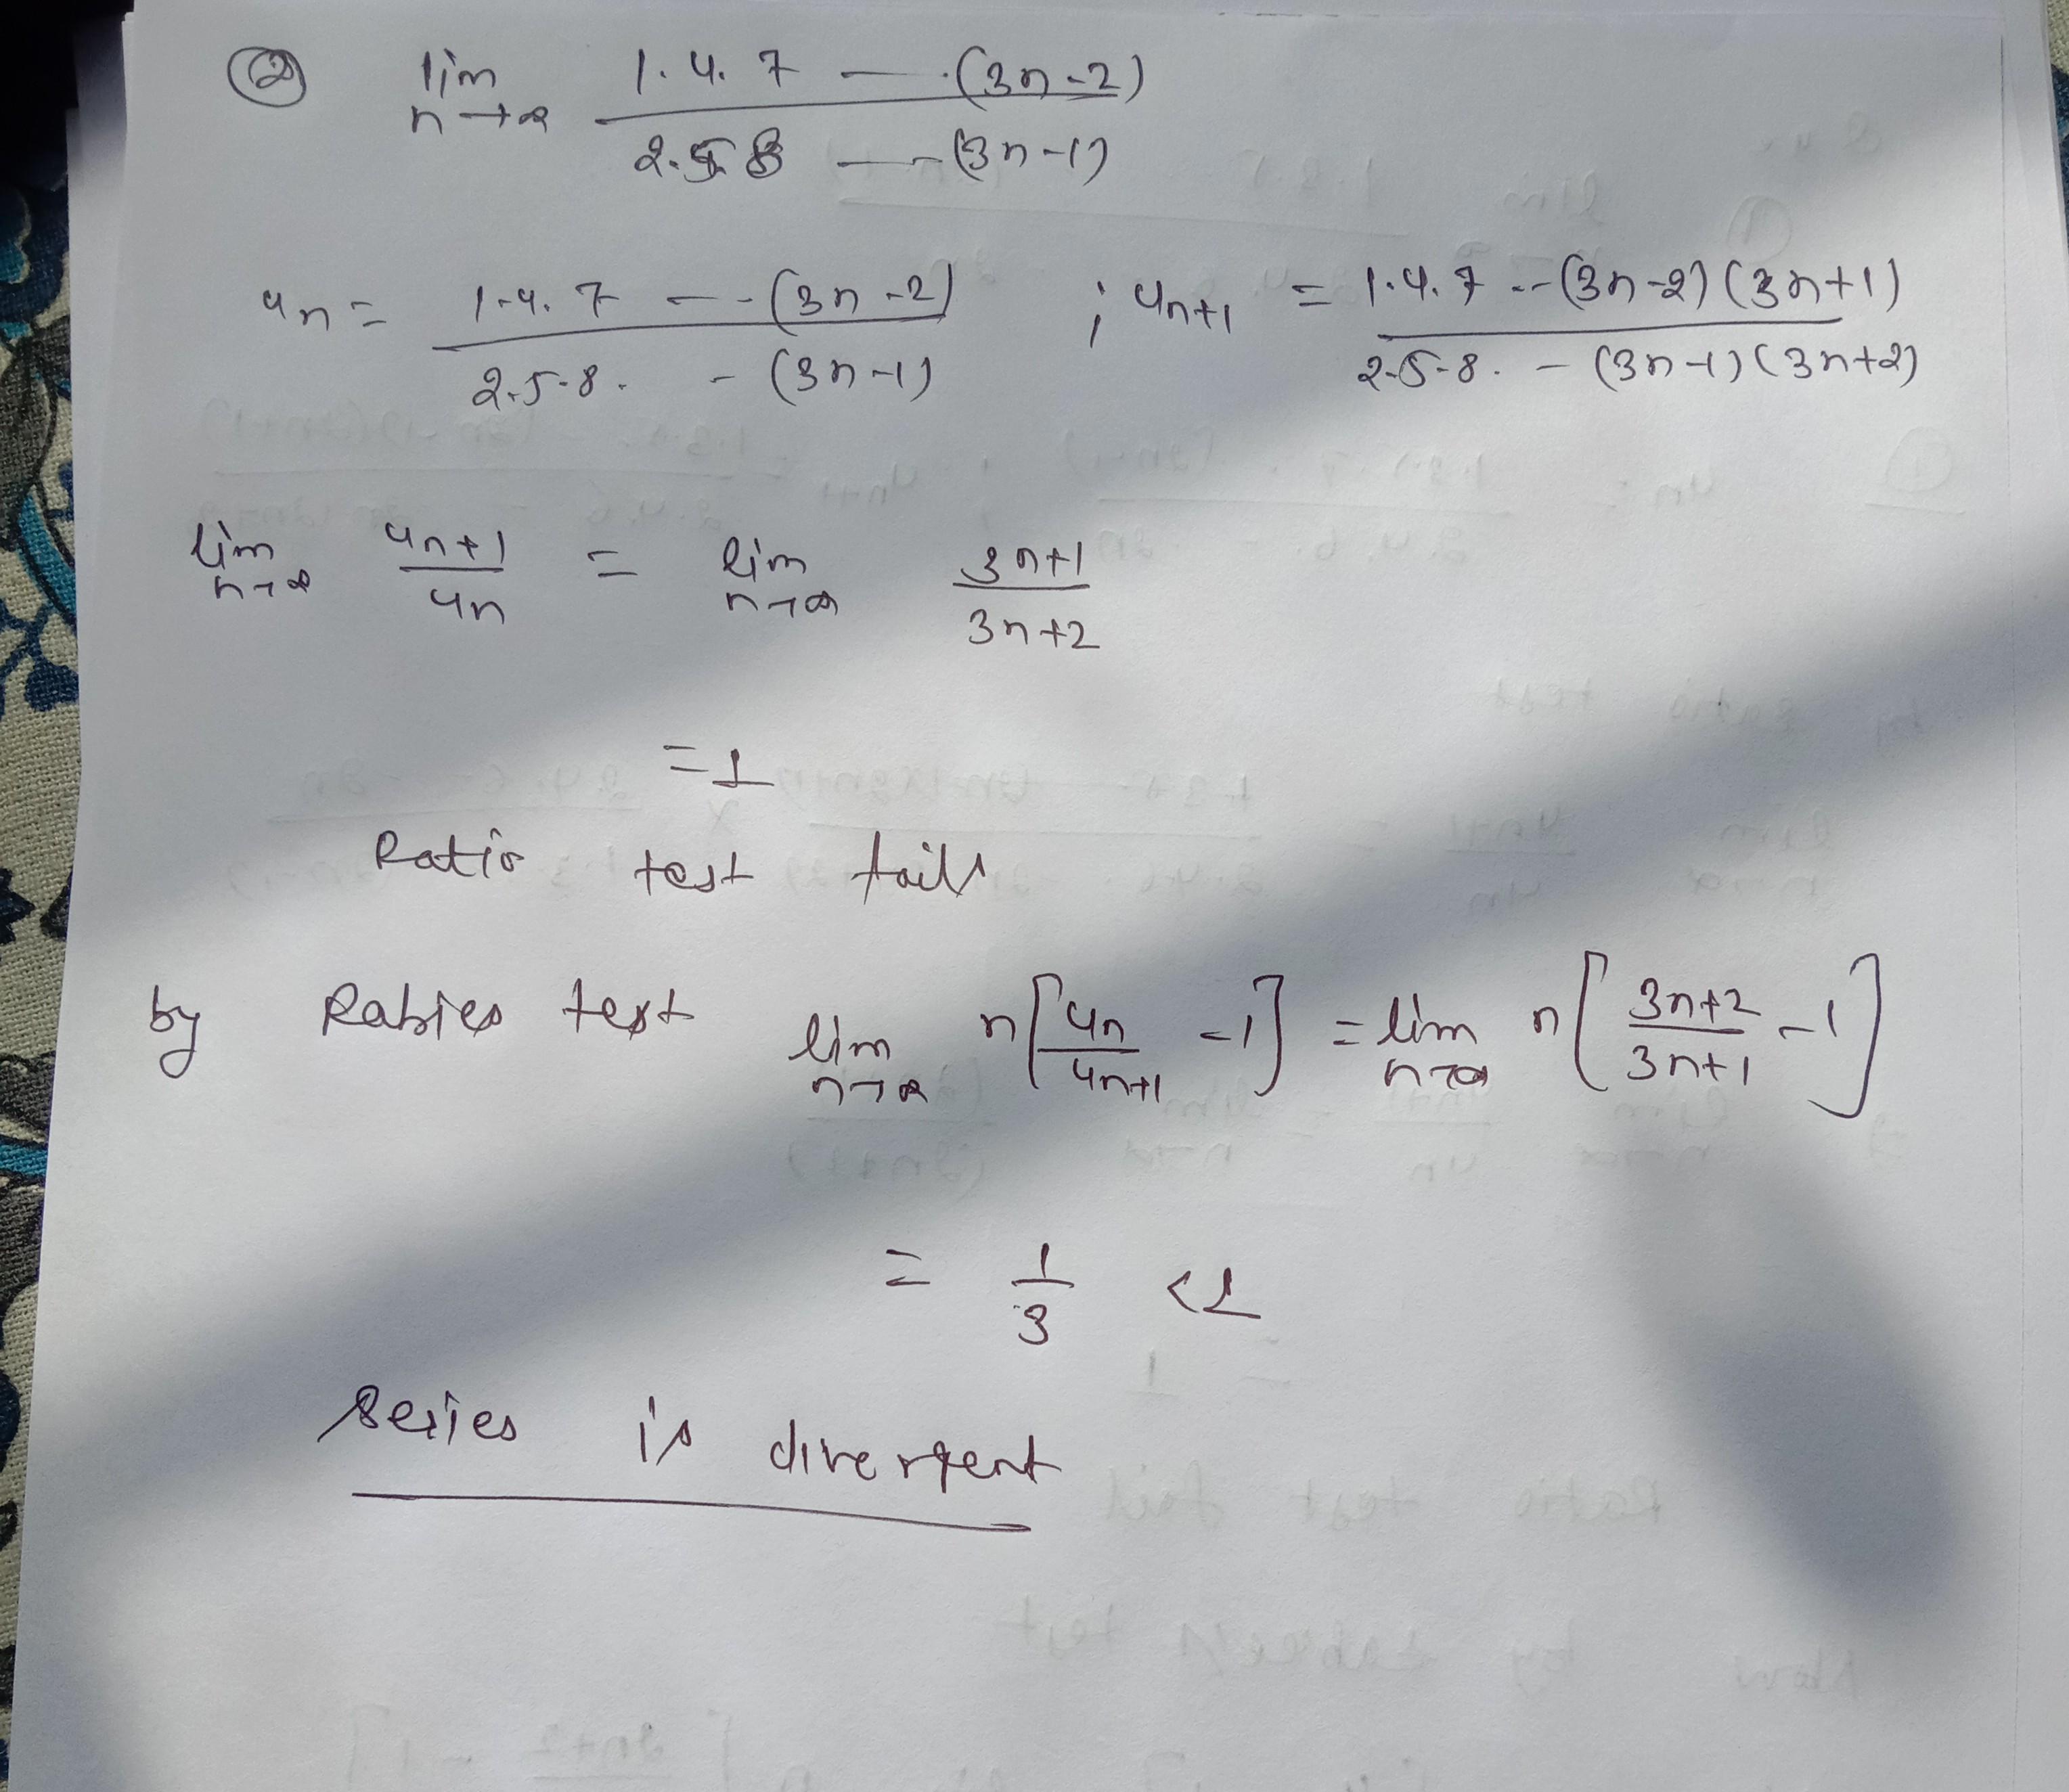 ② lim n→∞ 1.4.7 — .(3n-2) / 2.5.8 — -(3n-1)
un = 1.4.7 -- (3n-2) / 2.5.8. - (3n-1) ; un+1 = 1.4.7 --(3n-2)(3n+1) / 2.5.8. - (3n-1)(3n+2)
lim n→∞ un+1 / un = lim n→∞ 3n+1 / 3n+2
= 1
Ratio test fails
by Rabies test lim n→∞ n[un / un+1 -1] = lim n→∞ n[3n+2 / 3n+1 -1]
= 1/3 <1
series is divergent